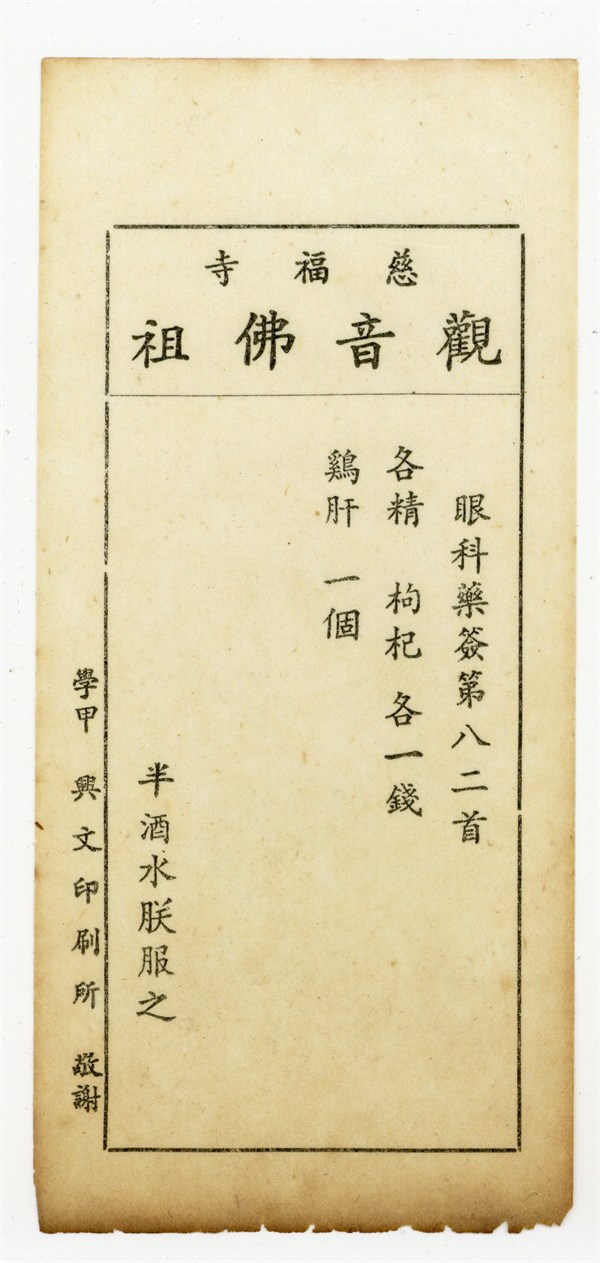 慈福寺
觀音佛祖
眼科藥簽第八二首
各精 枸杞 各一錢
鷄肝 一個
半酒水朕服之
學甲 興文印刷所 敬謝